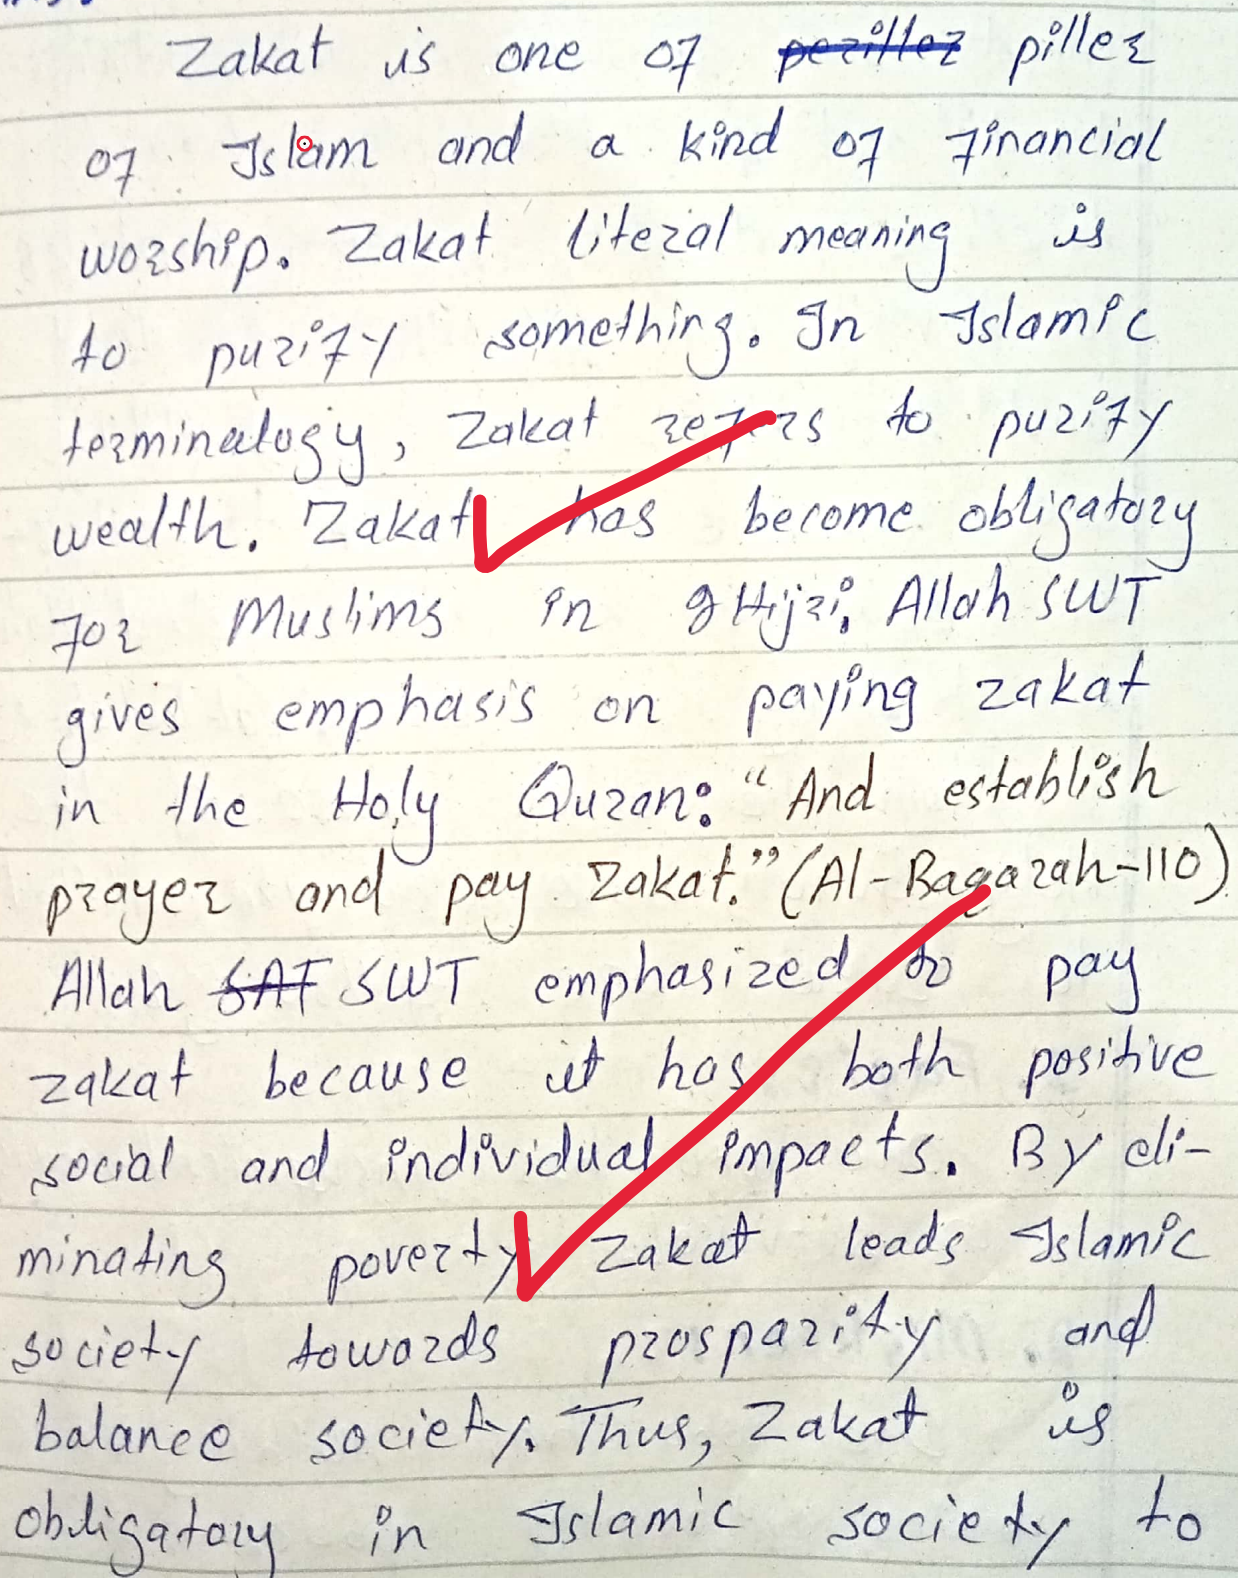 Zakat is one of piller
of Islam and a kind of financial
worship. Zakat literal meaning is
to purify something. In Islamic
terminalogy, Zakat refers to purify
wealth. Zakat has become obligatory
for Muslims in 9 Hijri. Allah SWT
gives emphasis on paying zakat
in the Holy Quran: "And establish
prayer and pay Zakat." (Al-Baqarah-110)
Allah SAT SWT emphasized to pay
zakat because it has both positive
social and individual impacts. By eli-
minating poverty Zakat leads Islamic
society towards prosparity and
balance society. Thus, Zakat is
obligatory in Islamic society to